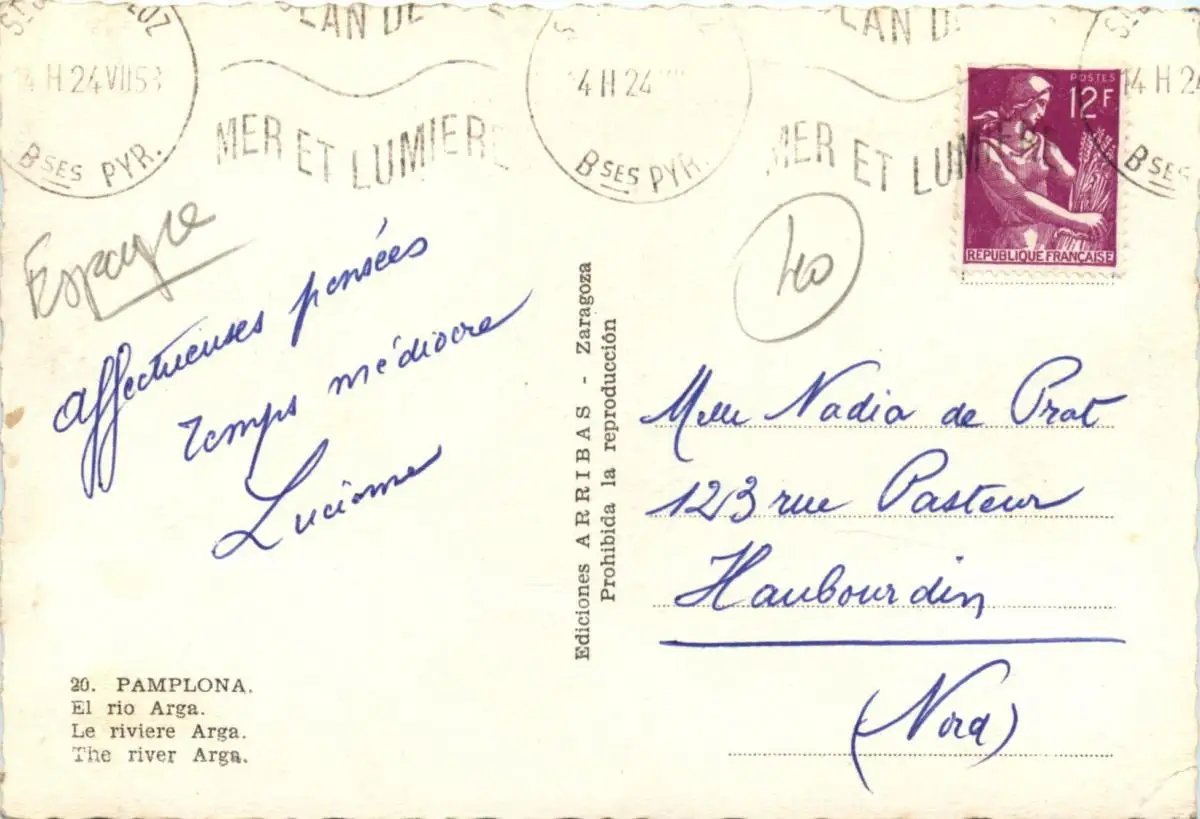 ST J LUZ
14 H 24 VII 58
BSES PYR.
JEAN DE
MER ET LUMIERE
14 H 24 VII
BSES PYR.
JEAN DE
MER ET LUMIERE
14 H 24
BSES
POSTES
12F
REPUBLIQUE FRANÇAISE
Espagne
40
affectueuses pensées
temps médiocre
Luciome
Ediciones ARRIBAS - Zaragoza
Prohibida la reproducción
Melle Nadia de Prat
123 rue Pasteur
Haubourdin
(Nord)
20. PAMPLONA.
El rio Arga.
Le riviere Arga.
The river Arga.